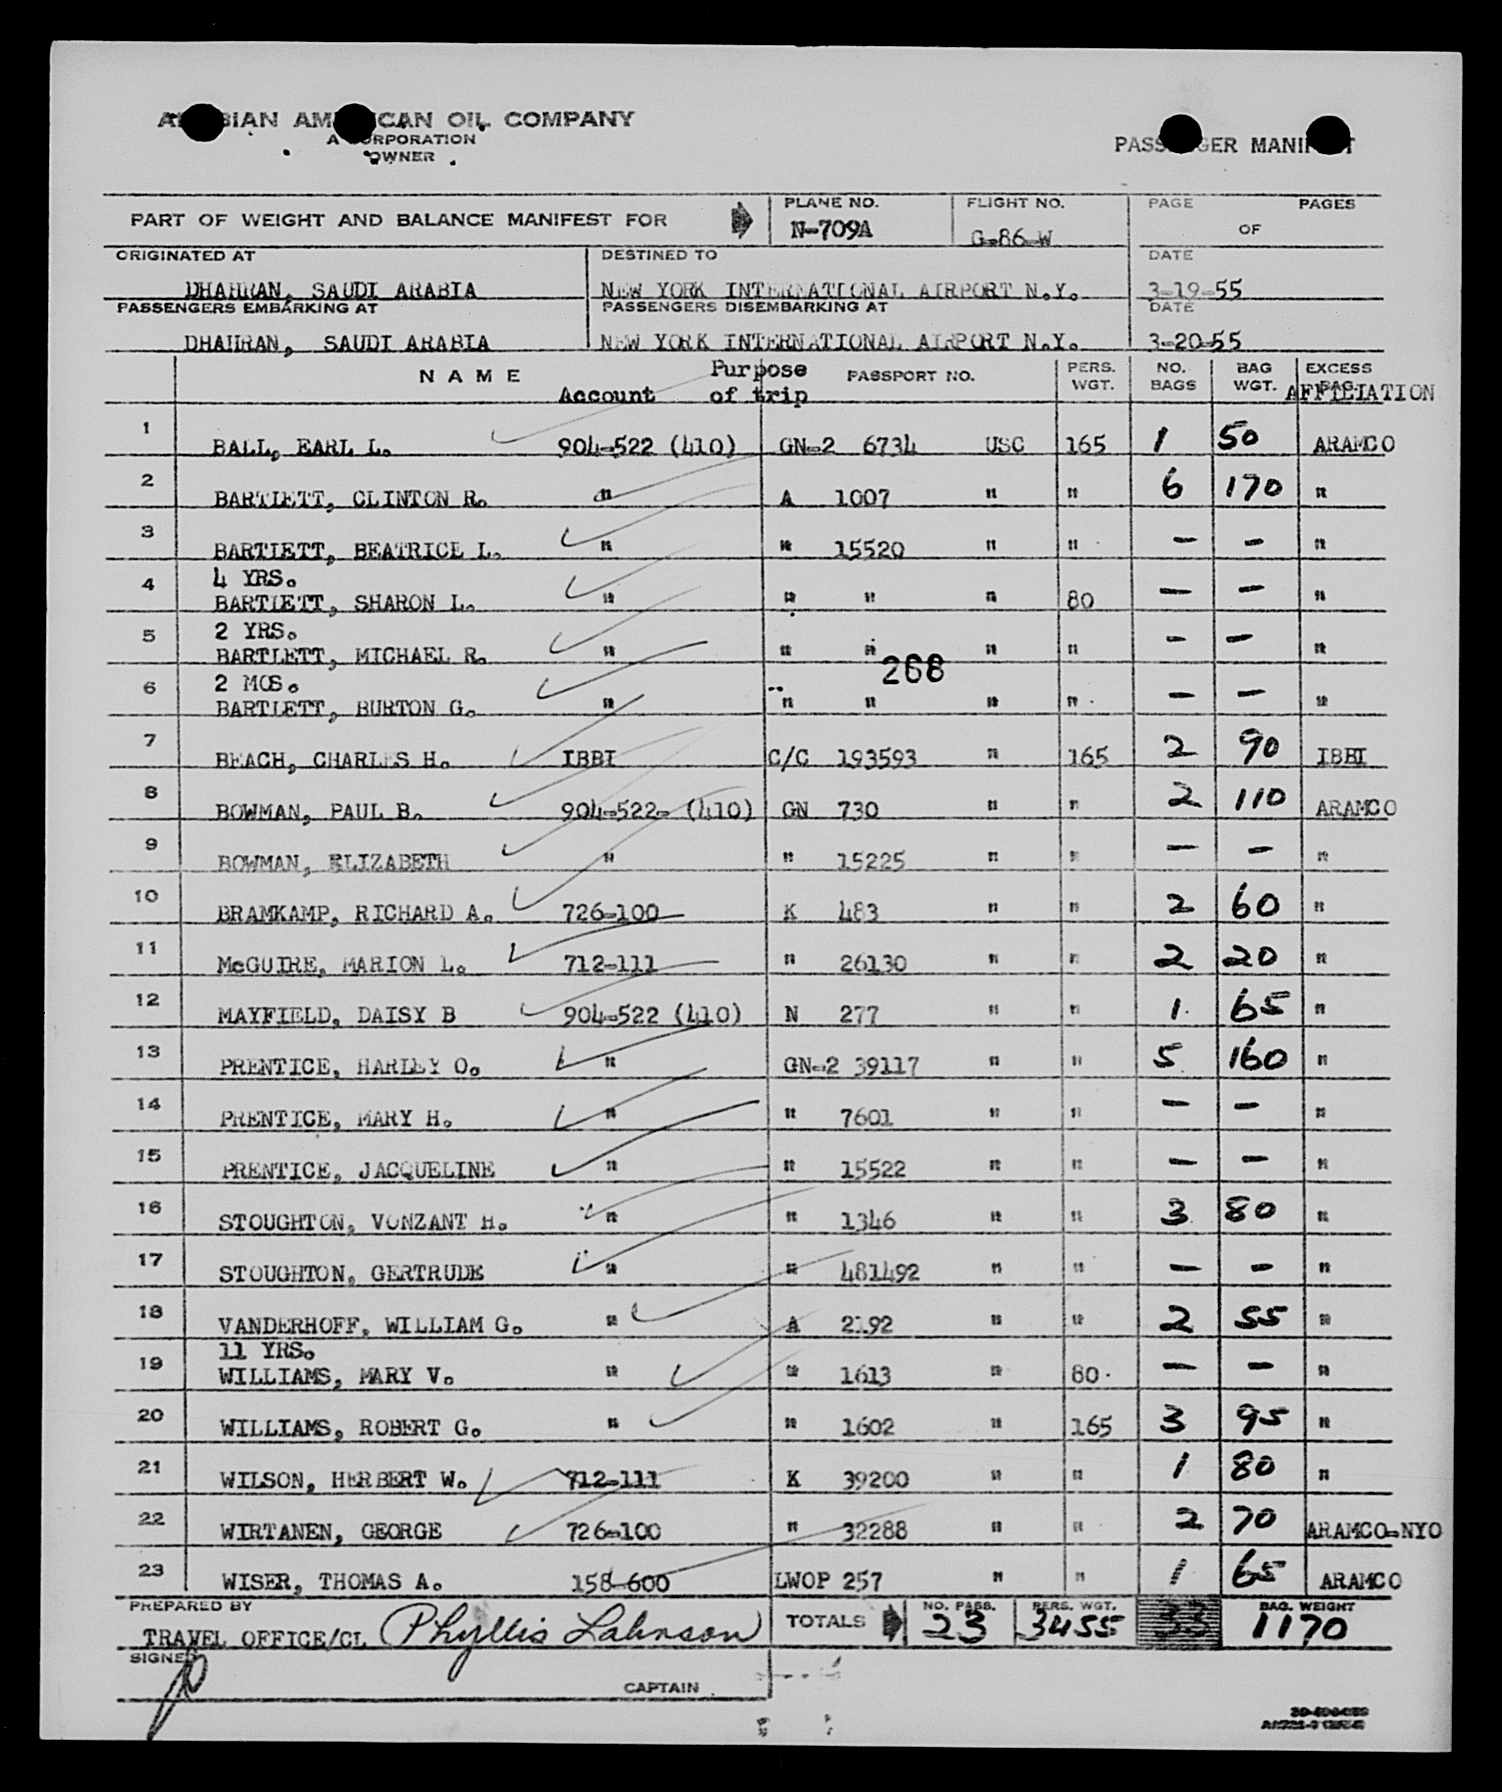 ARABIAN AMERICAN OIL COMPANY
A CORPORATION
OWNER
PASSENGER MANIFEST
PART OF WEIGHT AND BALANCE MANIFEST FOR PLANE NO. N-709A FLIGHT NO. G-86-W PAGE OF PAGES
ORIGINATED AT DESTINED TO DATE
DHAHRAN, SAUDI ARABIA NEW YORK INTERNATIONAL AIRPORT N.Y. 3-19-55
PASSENGERS EMBARKING AT PASSENGERS DISEMBARKING AT DATE
DHAHRAN, SAUDI ARABIA NEW YORK INTERNATIONAL AIRPORT N.Y. 3-20-55
NAME Account Purpose of trip PASSPORT NO. PERS. WGT. NO. BAGS BAG WGT. EXCESS BAG. AFFILIATION
1 BALL, EARL L. 904-522 (410) GN-2 6734 USC 165 1 50 ARAMCO
2 BARTLETT, CLINTON R. " A 1007 " " 6 170 "
3 BARTLETT, BEATRICE L. " " 15520 " " - - "
4 YRS.
4 BARTLETT, SHARON L. " " " " 80 - - "
2 YRS.
5 BARTLETT, MICHAEL R. " " " " " - - "
268
2 MOS.
6 BARTLETT, BURTON G. " " " " " - - "
7 BEACH, CHARLES H. IBBI C/C 193593 " 165 2 90 IBBI
8 BOWMAN, PAUL B. 904-522- (410) GN 730 " " 2 110 ARAMCO
9 BOWMAN, ELIZABETH " " 15225 " " - - "
10 BRAMKAMP, RICHARD A. 726-100 K 483 " " 2 60 "
11 McGUIRE, MARION L. 712-111 " 26130 " " 2 20 "
12 MAYFIELD, DAISY B 904-522 (410) N 277 " " 1 65 "
13 PRENTICE, HARLEY O. " GN-2 39117 " " 5 160 "
14 PRENTICE, MARY H. " " 7601 " " - - "
15 PRENTICE, JACQUELINE " " 15522 " " - - "
16 STOUGHTON, VONZANT H. " " 1346 " " 3 80 "
17 STOUGHTON, GERTRUDE " " 481492 " " - - "
18 VANDERHOFF, WILLIAM G. " A 2192 " " 2 55 "
11 YRS.
19 WILLIAMS, MARY V. " " 1613 " 80 - - "
20 WILLIAMS, ROBERT G. " " 1602 " 165 3 95 "
21 WILSON, HERBERT W. 712-111 K 39200 " " 1 80 "
22 WIRTANEN, GEORGE 726-100 " 32288 " " 2 70 ARAMCO-NYO
23 WISER, THOMAS A. 158-600 LWOP 257 " " 1 65 ARAMCO
PREPARED BY NO. PASS. PERS. WGT. BAG. WEIGHT
TRAVEL OFFICE/CL Phyllis Lahnson TOTALS 23 3455 33 1170
SIGNED
CAPTAIN